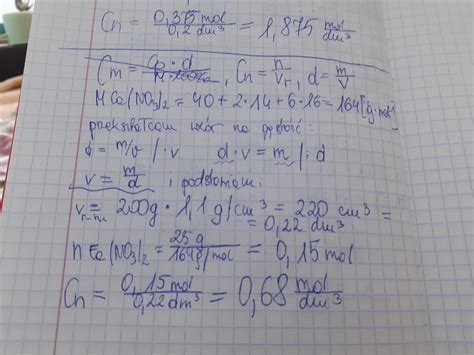 Cn = 0,375 mol / 0,2 dm³ = 1,875 mol/dm³
Cm = Cp · d / M · 100% , Cn = n/Vr , d = m/V
M Ca(NO₃)₂ = 40 + 2·14 + 6·16 = 164 [g·mol⁻¹]
przekształcam wzór na gęstość:
d = m/v /·v d·v = m /:d
v = m/d i podstawiam:
v r-ru = 200g · 1,1 g/cm³ = 220 cm³ =
= 0,22 dm³
n Ca(NO₃)₂ = 25 g / 164 g/mol = 0,15 mol
Cn = 0,15 mol / 0,22 dm³ = 0,68 mol/dm³